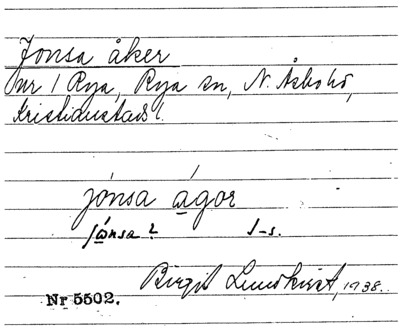 Jonsa åker
nr 1 Rya, Rya sn, N. Åsbo hd,
Kristianstads l.
jónsa ágor
jónsa? l-s.
Birgit Lundkvist, 1938.
Nr 5502.